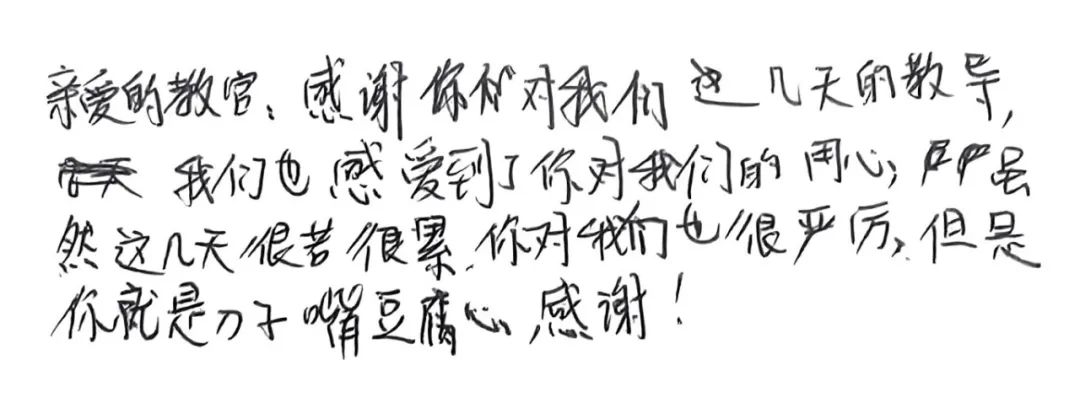 亲爱的教官：感谢你对我们这几天的教导，
我们也感爱到了你对我们的用心；虽
然这几天很苦很累，你对我们也很严厉，但是
你就是刀子嘴豆腐心，感谢！